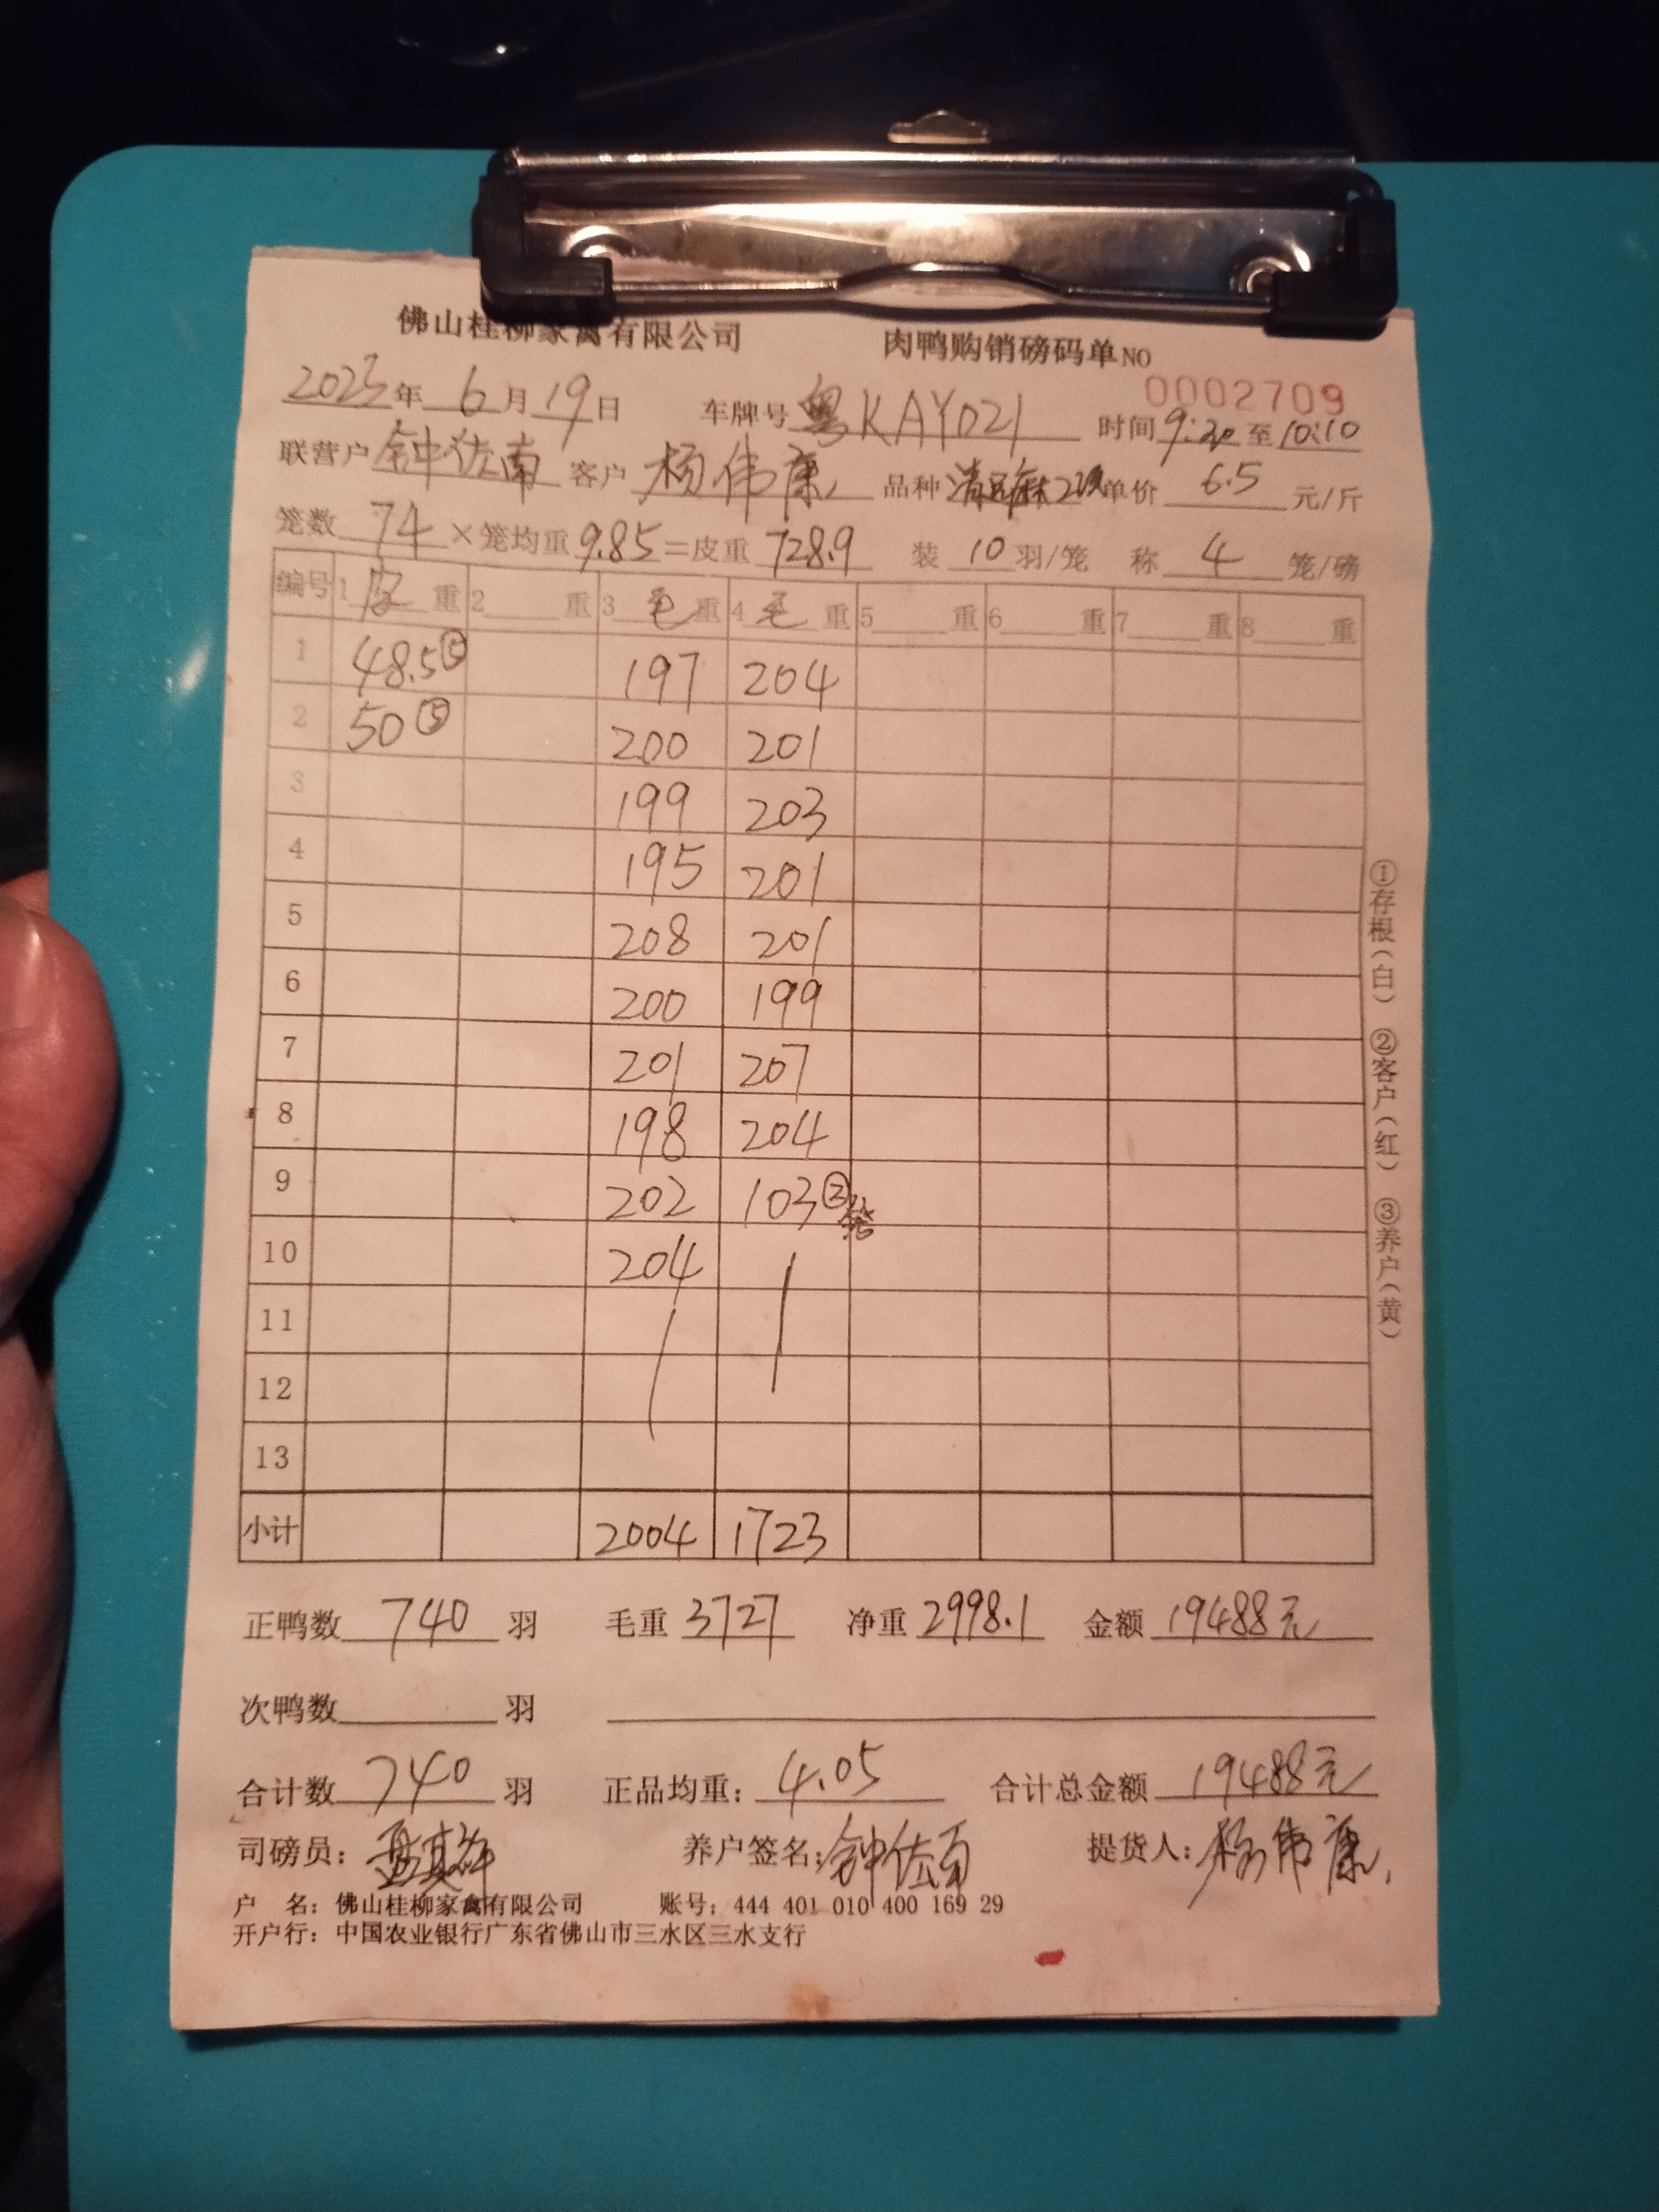 佛山桂柳家禽有限公司 肉鸭购销磅码单NO 0002709
2025年6月19日 车牌号 粤KAY021 时间 9:20 至 10:10
联营户 钟佐南 客户 杨伟康 品种 单价 6.5 元/斤
笼数 74 ×笼均重 9.85 =皮重 728.9 装 10 羽/笼 称 4 笼/磅
编号 1 重 2 重 3 毛 重 4 毛 重 5 重 6 重 7 重 8 重
1 48.5⑤ 197 204
2 50⑤ 200 201
3 199 203
4 195 201
5 208 201
6 200 199
7 201 207
8 198 204
9 202 103②
10 204
11
12
13
小计 2004 1723
正鸭数 740 羽 毛重 3727 净重 2998.1 金额 19488元
次鸭数 羽
合计数 740 羽 正品均重: 4.05 合计总金额 19488元
司磅员: 养户签名: 钟佐南 提货人: 杨伟康
户 名: 佛山桂柳家禽有限公司 账号: 444 401 010 400 169 29
开户行: 中国农业银行广东省佛山市三水区三水支行
①存根(白) ②客户(红) ③养户(黄)